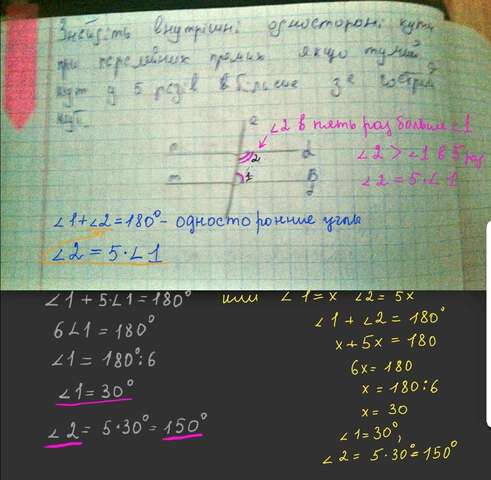 Знайдіть внутрішні односторонні кути
при паралельних прямих якщо тупий
кут у 5 разів більше за гострий
кут.
∠2 в пять раз больше ∠1
∠2 > ∠1 в 5 раз
∠2 = 5·∠1
2
1
∠1+∠2=180° - односторонние углы
∠2 = 5·∠1
∠1 + 5·∠1 = 180°
6∠1 = 180°
∠1 = 180°:6
∠1 = 30°
∠2 = 5·30° = 150°
или ∠1 = x ∠2 = 5x
∠1 + ∠2 = 180°
x + 5x = 180
6x = 180
x = 180:6
x = 30
∠1 = 30°,
∠2 = 5·30° = 150°